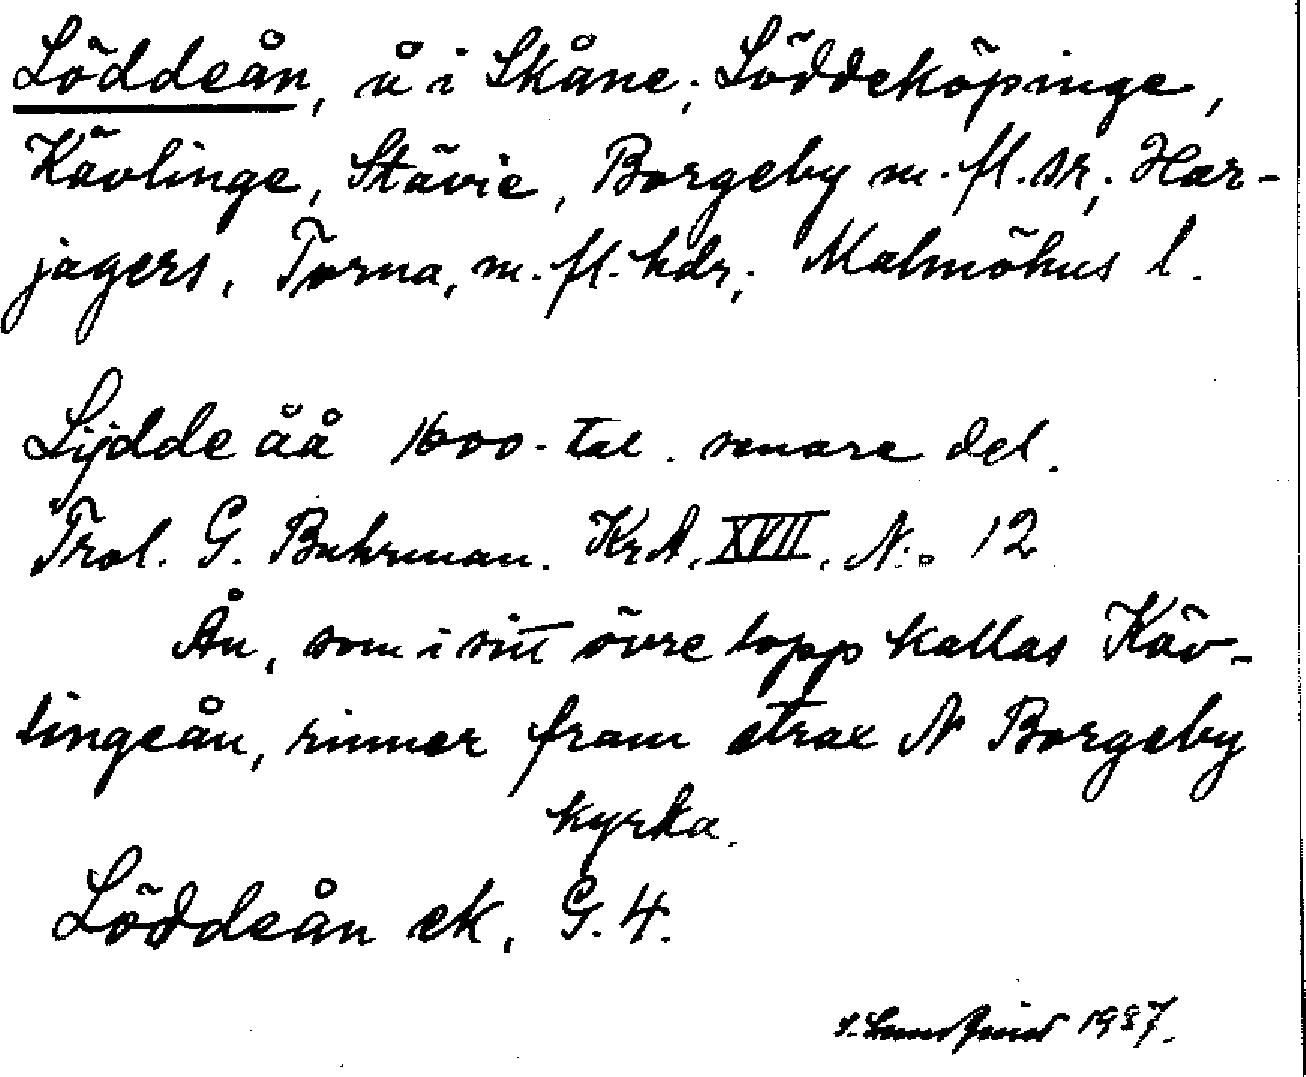 Löddeån, å i Skåne; Löddeköpinge,
Kävlinge, Stävie, Borgeby m. fl. sr; Har-
jagers, Torna, m. fl. hdr; Malmöhus l.
Lijdde åå 1600-tal. senare del.
Trol. G. Buhrman. KrA. XVII. N:o 12
Ån, som i sitt övre lopp kallas Käv-
lingeån, rinner fram strax N Borgeby
kyrka.
Löddeån ek. G. 4.
1937.